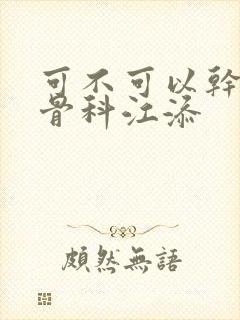 可不可以幹
骨科江添
頗然無語